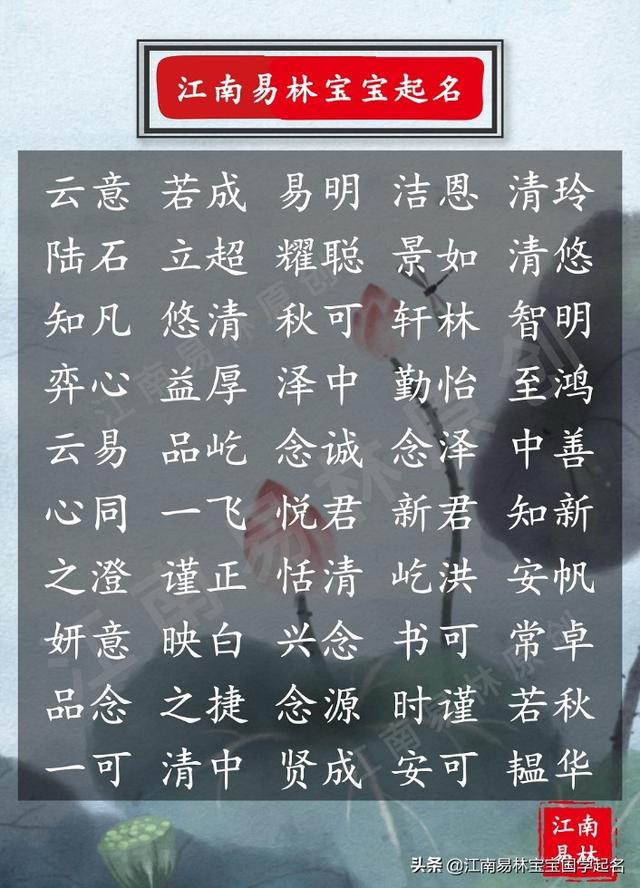 江南易林宝宝起名
云意 若成 易明 洁恩 清玲
陆石 立超 耀聪 景如 清悠
知凡 悠清 秋可 轩林 智明
弈心 益厚 泽中 勤怡 至鸿
云易 品屹 念诚 念泽 中善
心同 一飞 悦君 新君 知新
之澄 谨正 恬清 屹洪 安帆
妍意 映白 兴念 书可 常卓
品念 之捷 念源 时谨 若秋
一可 清中 贤成 安可 韫华
江南易林原创
江南易林原创
江南易林原创
江南
易林
头条 @江南易林宝宝国学起名